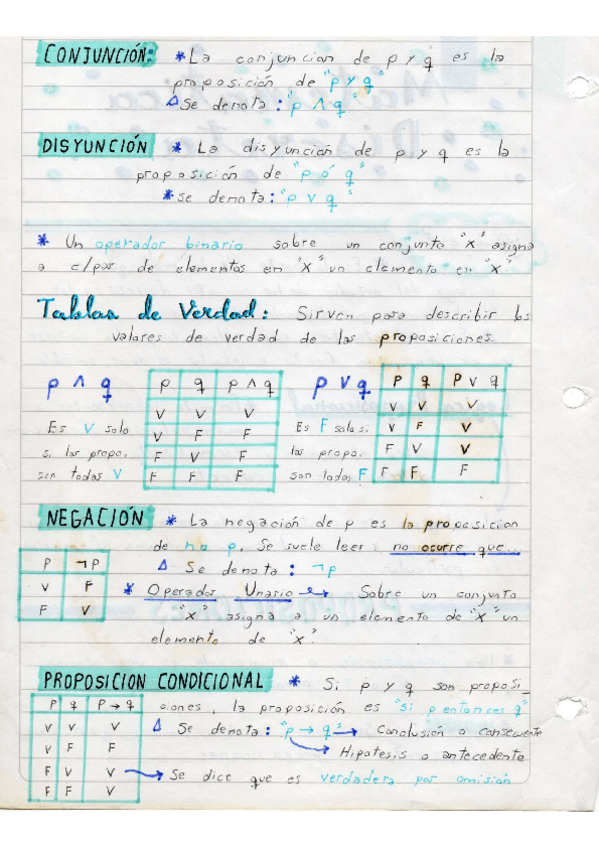 CONJUNCIÓN: * La conjuncion de p y q es la
proposición de "p y q"
Δ Se denota: "p ∧ q"
DISYUNCIÓN * La disyunción de p y q es la
proposición de "p ó q"
* se denota: "p v q"
* Un operador binario sobre un conjunto "x" asigna
a c/par de elementos en "x" un elemento en "x"
Tablas de Verdad: Sirven para describir los
valores de verdad de las proposiciones.
p ∧ q
Es V solo
si las propo.
son todas V
p q p ∧ q
V V V
V F F
F V F
F F F
p v q
Es F solo si
las propo.
son todas F
p q p v q
V V V
V F V
F V V
F F F
NEGACIÓN * La negación de p es la proposicion
de no p. Se suele leer: no ocurre que...
Δ Se denota: ¬p
P ¬P
V F
F V
* Operador Unario → Sobre un conjunto
"x" asigna a un elemento de "x" un
elemento de "x".
PROPOSICION CONDICIONAL * Si p y q son proposi_
ciones, la proposición es "si p entonces q"
Δ Se denota: "p → q" → Conclusión o consecuente
→ Hipotesis o antecedente
P q P → q
V V V
V F F
F V V → Se dice que es verdadera por omisión
F F V